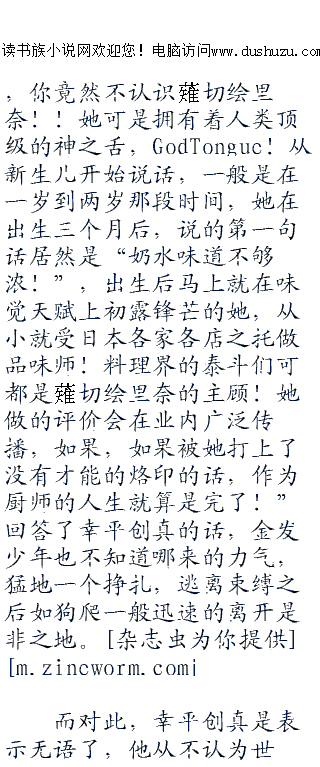 读书族小说网欢迎您！电脑访问www.dushuzu.com
，你竟然不认识薙切绘里
奈！！她可是拥有着人类顶
级的神之舌，GodTonguc！从
新生儿开始说话，一般是在
一岁到两岁那段时间，她在
出生三个月后，说的第一句
话居然是“奶水味道不够
浓！”，出生后马上就在味
觉天赋上初露锋芒的她，从
小就受日本各家各店之托做
品味师！料理界的泰斗们可
都是薙切绘里奈的主顾！她
做的评价会在业内广泛传
播，如果，如果被她打上了
没有才能的烙印的话，作为
厨师的人生就算是完了！”
回答了幸平创真的话，金发
少年也不知道哪来的力气，
猛地一个挣扎，逃离束缚之
后如狗爬一般迅速的离开是
非之地。[杂志虫为你提供]
[m.zincworm.com]
而对此，幸平创真是表
示无语了，他从不认为世